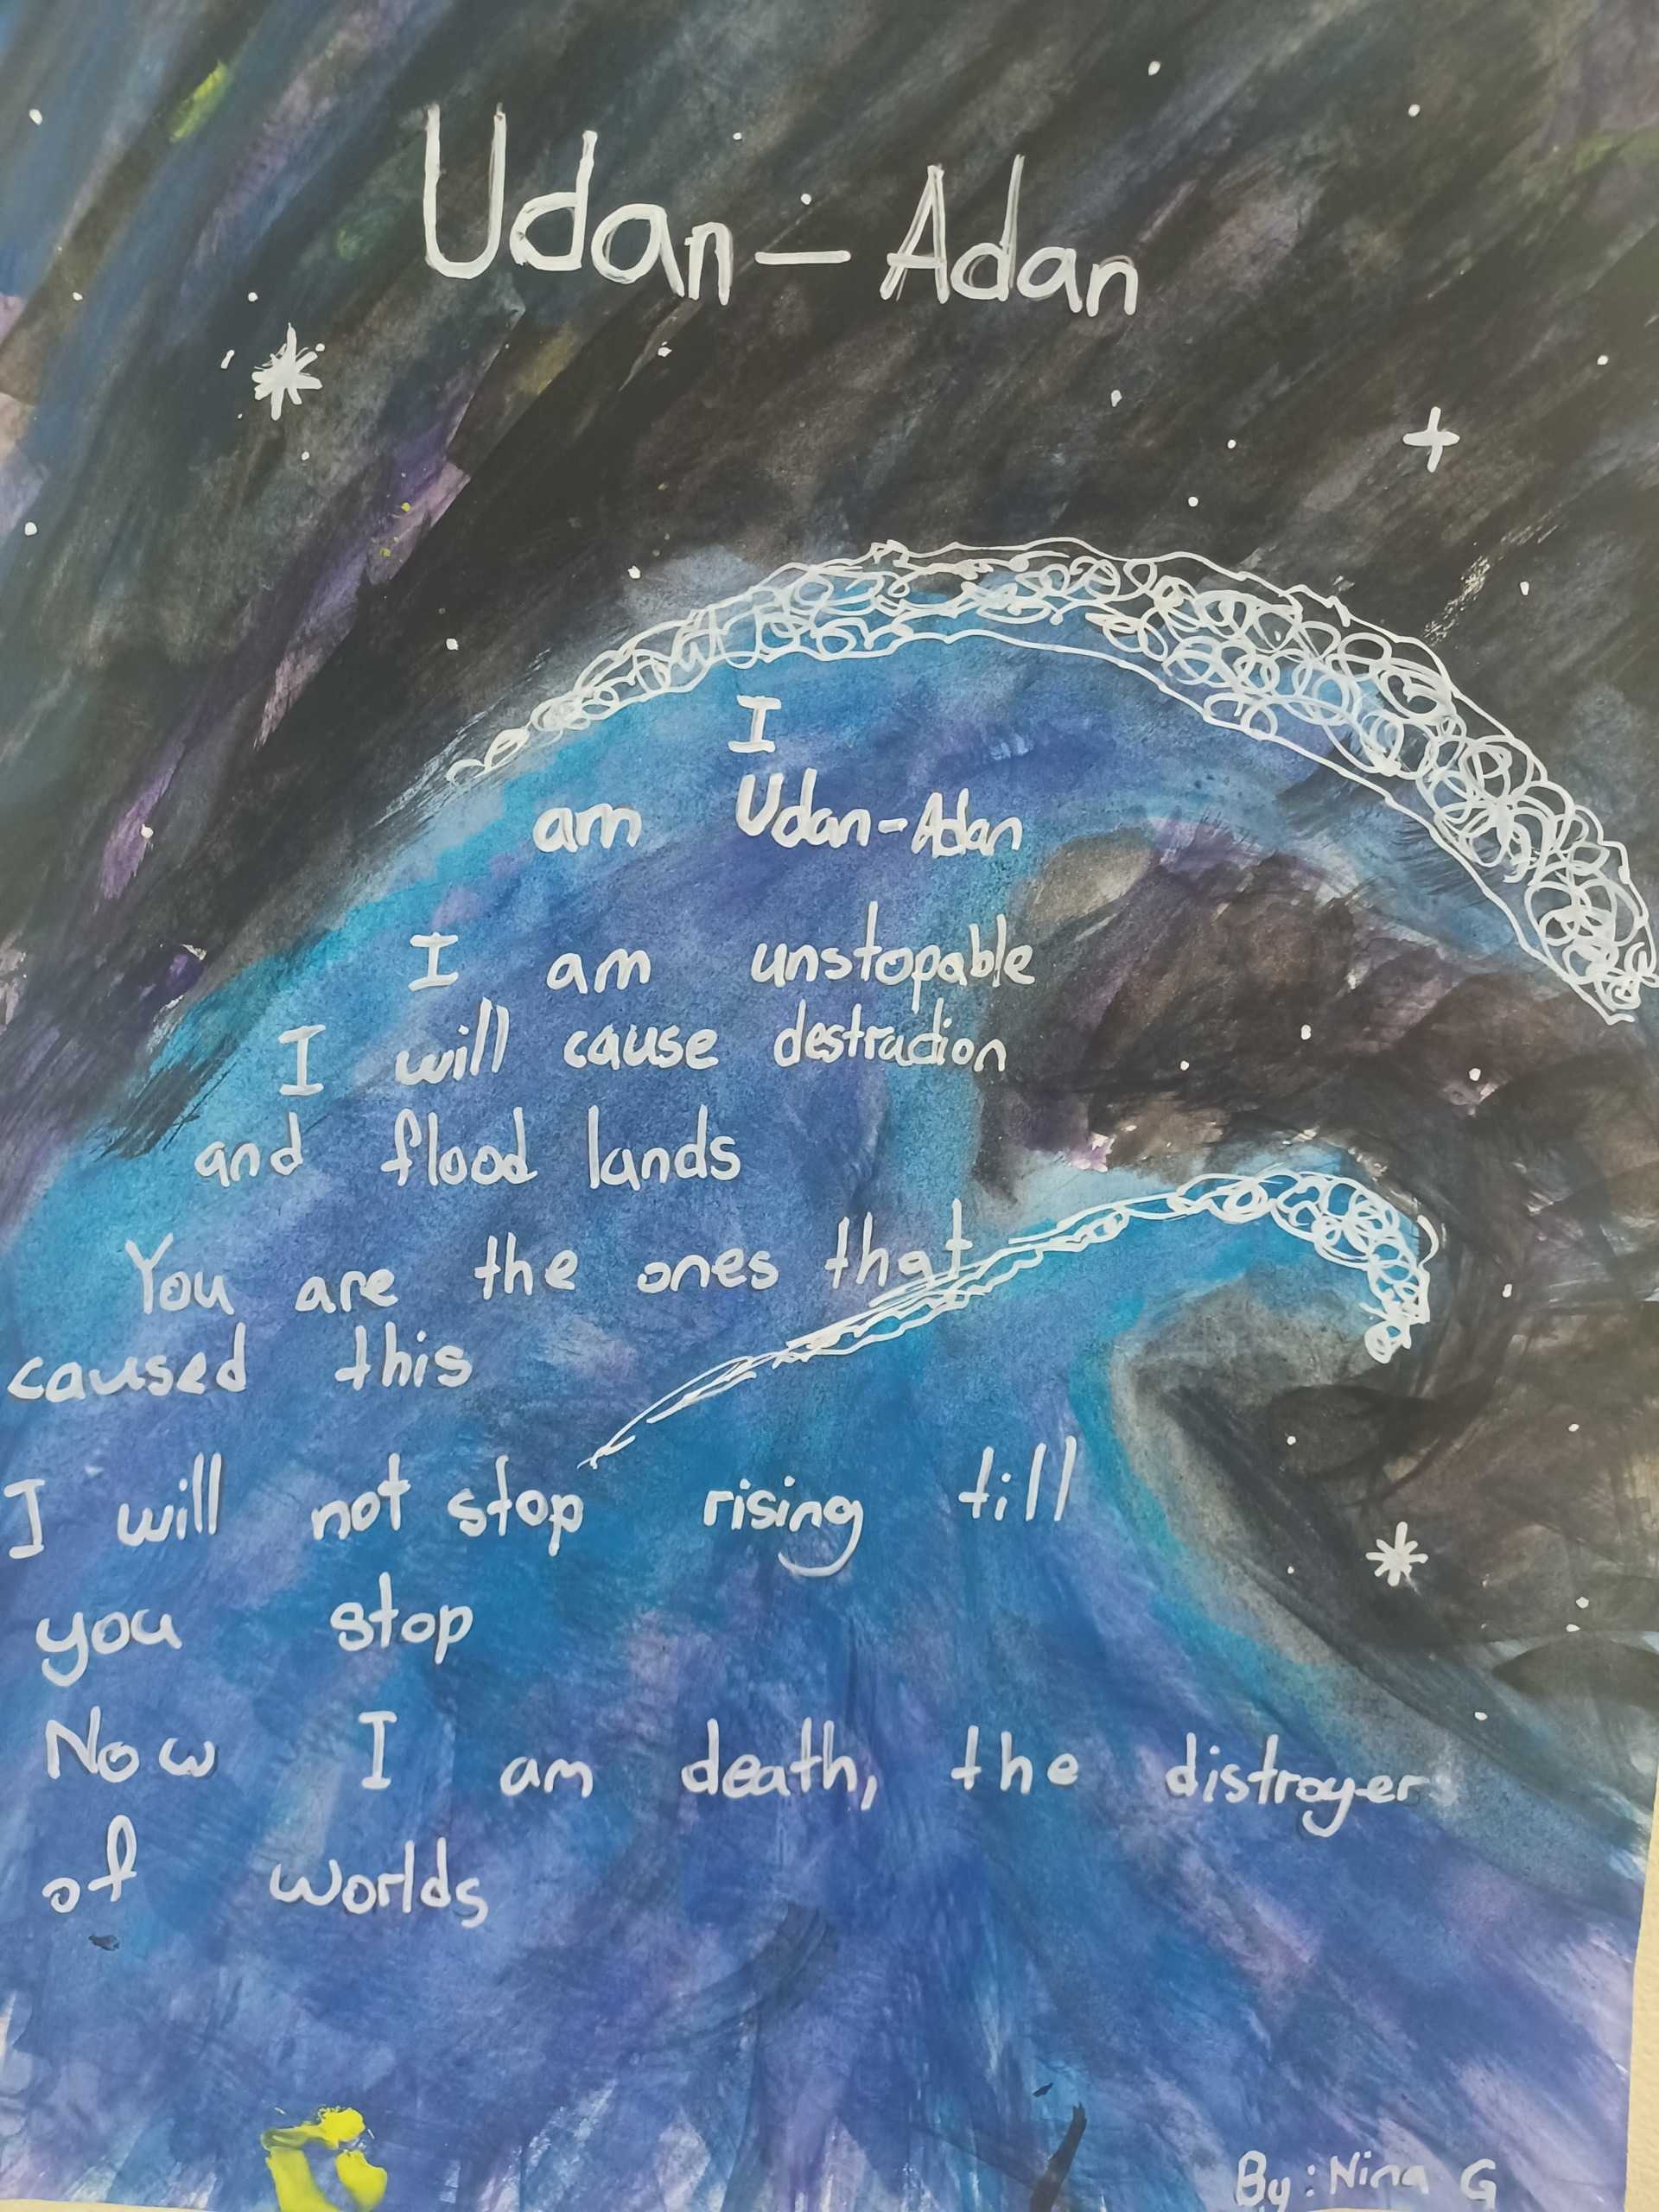 Udan-Adan
I
am Udan-Adan
I am unstopable
I will cause destruction
and flood lands
You are the ones that
caused this
I will not stop rising till
you stop
Now I am death, the distroyer
of worlds
By: Nina G